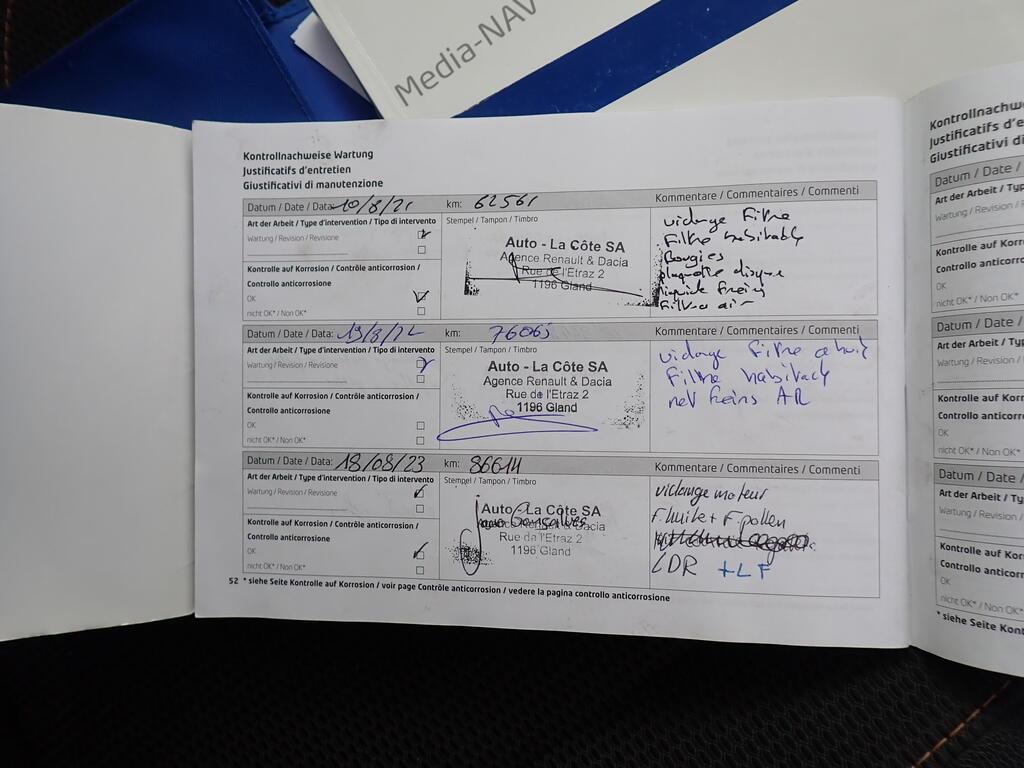 Media-NAV
Kontrollnachweise Wartung
Justificatifs d'entretien
Giustificativi di manutenzione
Datum / Date / Data: 10/8/21 km: 62561 Kommentare / Commentaires / Commenti
Art der Arbeit / Type d'intervention / Tipo di intervento
Wartung / Revision / Revisione
Kontrolle auf Korrosion / Contrôle anticorrosion /
Controllo anticorrosione
OK
nicht OK* / Non OK*
Stempel / Tampon / Timbro
Auto - La Côte SA
Agence Renault & Dacia
Rue de l'Etraz 2
1196 Gland
vidange Filtre
Filtre habitacle
Bougies
plaquette disque
liquide freins
Filtre air
Datum / Date / Data: 19/8/22 km: 76065 Kommentare / Commentaires / Commenti
Art der Arbeit / Type d'intervention / Tipo di intervento
Wartung / Revision / Revisione
Kontrolle auf Korrosion / Contrôle anticorrosion /
Controllo anticorrosione
OK
nicht OK* / Non OK*
Stempel / Tampon / Timbro
Auto - La Côte SA
Agence Renault & Dacia
Rue de l'Etraz 2
1196 Gland
vidange Filtre
Filtre habitacle
net freins AR
Datum / Date / Data: 18/08/23 km: 86614 Kommentare / Commentaires / Commenti
Art der Arbeit / Type d'intervention / Tipo di intervento
Wartung / Revision / Revisione
Kontrolle auf Korrosion / Contrôle anticorrosion /
Controllo anticorrosione
OK
nicht OK* / Non OK*
Stempel / Tampon / Timbro
Auto - La Côte SA
Agence Renault & Dacia
Rue de l'Etraz 2
1196 Gland
vidange moteur
F. huile + F. pollen
LDR + LF
52 * siehe Seite Kontrolle auf Korrosion / voir page Contrôle anticorrosion / vedere la pagina controllo anticorrosione
Kontrollnachw
Justificatifs d'e
Giustificativi di
Datum / Date /
Art der Arbeit / Typ
Wartung / Revision /
Kontrolle auf Kor
Controllo anticorro
OK
nicht OK* / Non OK*
Datum / Date /
Art der Arbeit / Typ
Wartung / Revision
Kontrolle auf Kor
Controllo anticorr
OK
nicht OK* / Non OK*
Datum / Date /
Art der Arbeit / Ty
Wartung / Revision
Kontrolle auf Ko
Controllo antico
OK
nicht OK* / Non O
* siehe Seite Kont